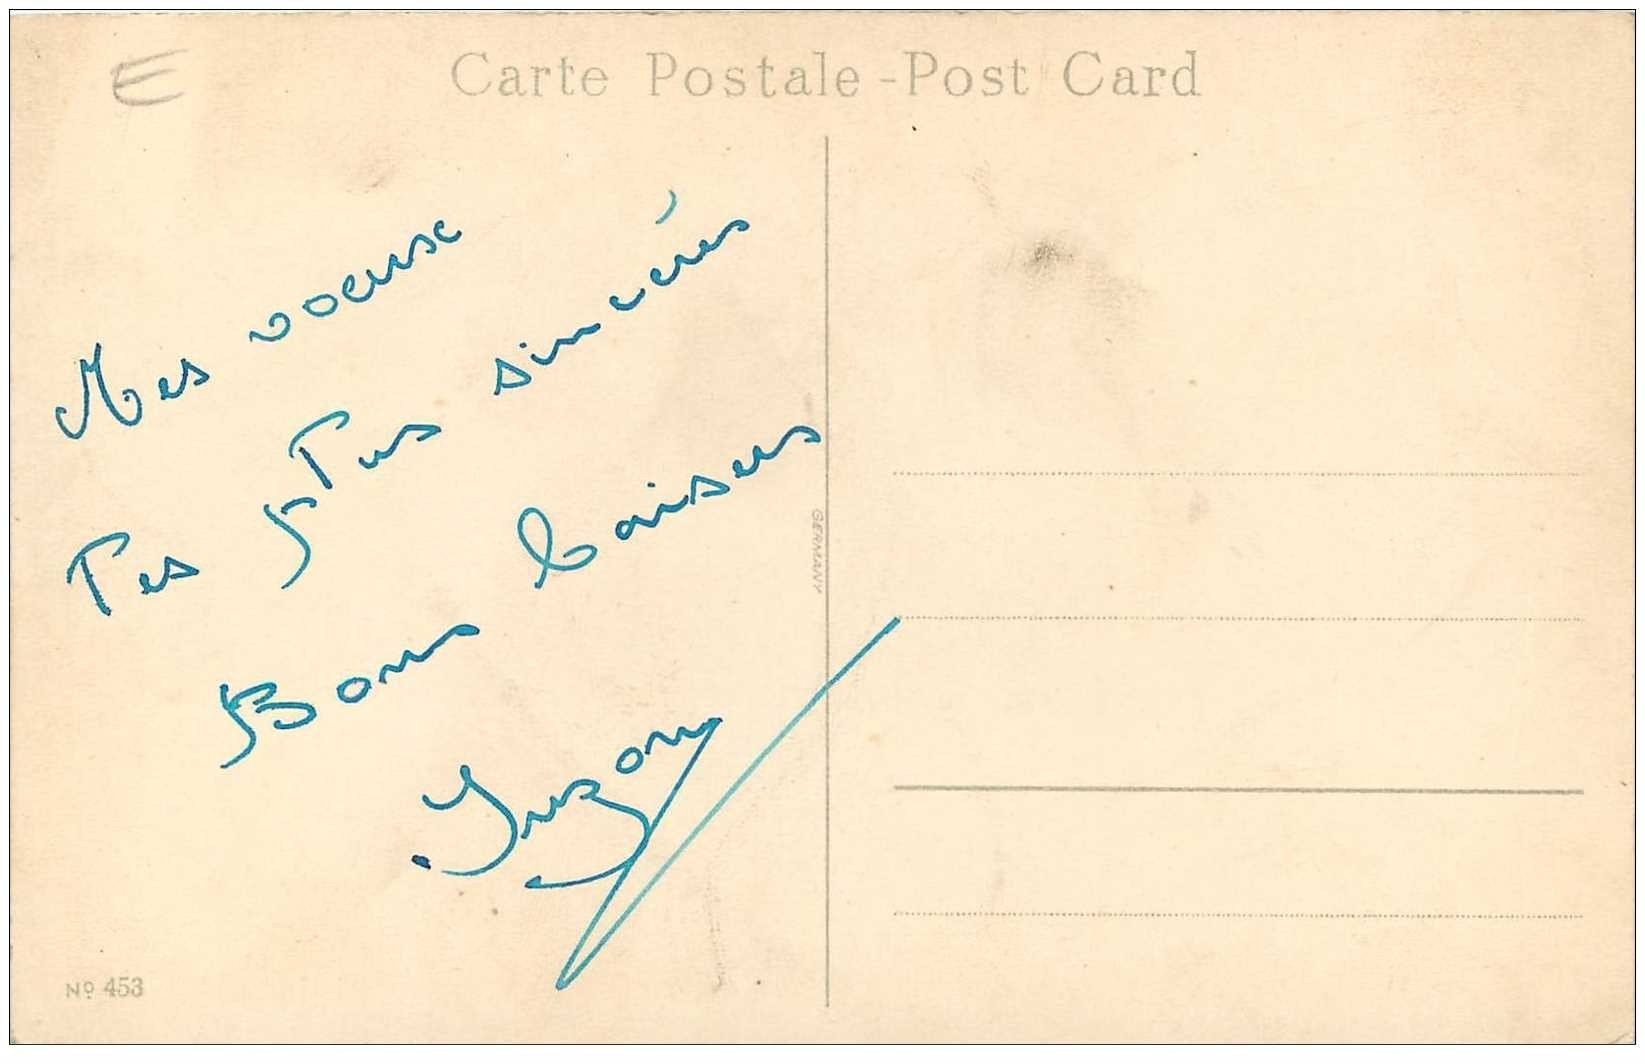 E
Carte Postale - Post Card
Mes voeux
les plus sincéres
Bons baisers
Suzon
GERMANY
Nº 453